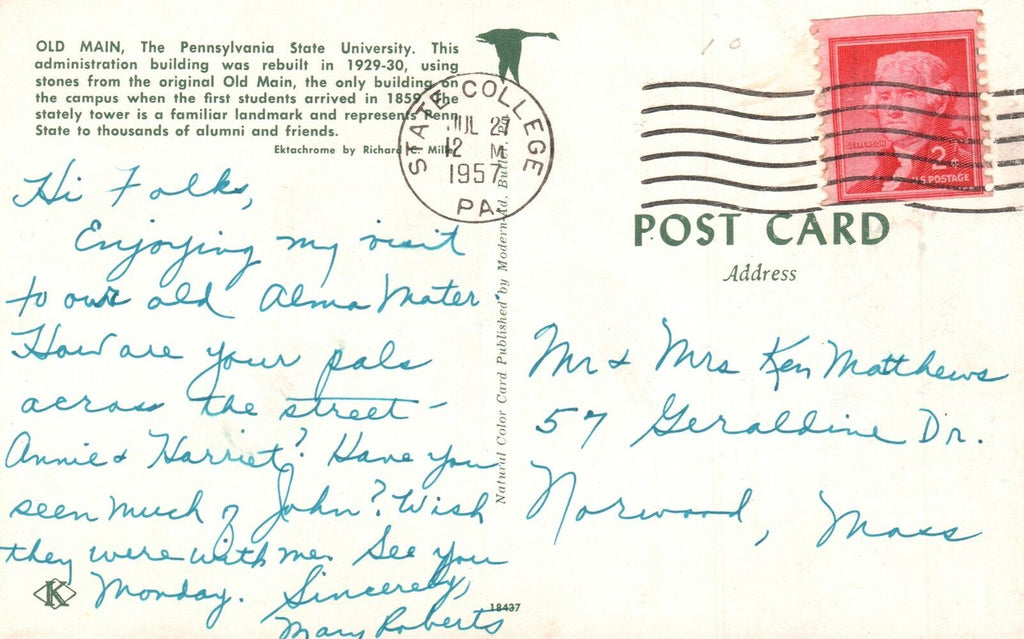 OLD MAIN, The Pennsylvania State University. This
administration building was rebuilt in 1929-30, using
stones from the original Old Main, the only building on
the campus when the first students arrived in 1859. The
stately tower is a familiar landmark and represents Penn
State to thousands of alumni and friends.
Ektachrome by Richard C. Miller
STATE COLLEGE
JUL 27
12 M
1957
PA.
JEFFERSON
2¢
US POSTAGE
10
POST CARD
Address
Hi Folks,
Enjoying my visit
to our old Alma Mater
How are your pals
across the street –
Annie & Harriet? Have you
seen much of John? Wish
they were with me. See you
Monday. Sincerely,
Mary Roberts
K
18437
Natural Color Card Published by Modern-Ad. Butler, Pa.
Mr & Mrs Ken Matthews
57 Geraldine Dr.
Norwood, Mass